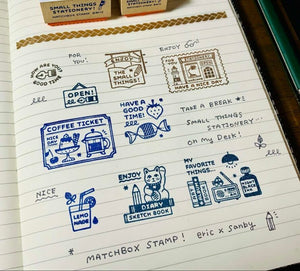 SMALL THINGS
STATIONERY!
MATCHBOX STAMP
FOR
YOU!
ENJOY
GOOD
TIME!
OPEN!
ENJOY
THE
SMALL
THINGS!
HAVE A NICE DAY
COFFEE TICKET
NICE
DAY
HAVE A
GOOD
TIME!
TAKE A BREAK *!
SMALL THINGS
STATIONERY
OH MY DESK!
NICE
LEMO
NADE
ENJOY
DIARY
SKETCH BOOK
MY
FAVORITE
THINGS...
* MATCHBOX STAMP! eric x sanby